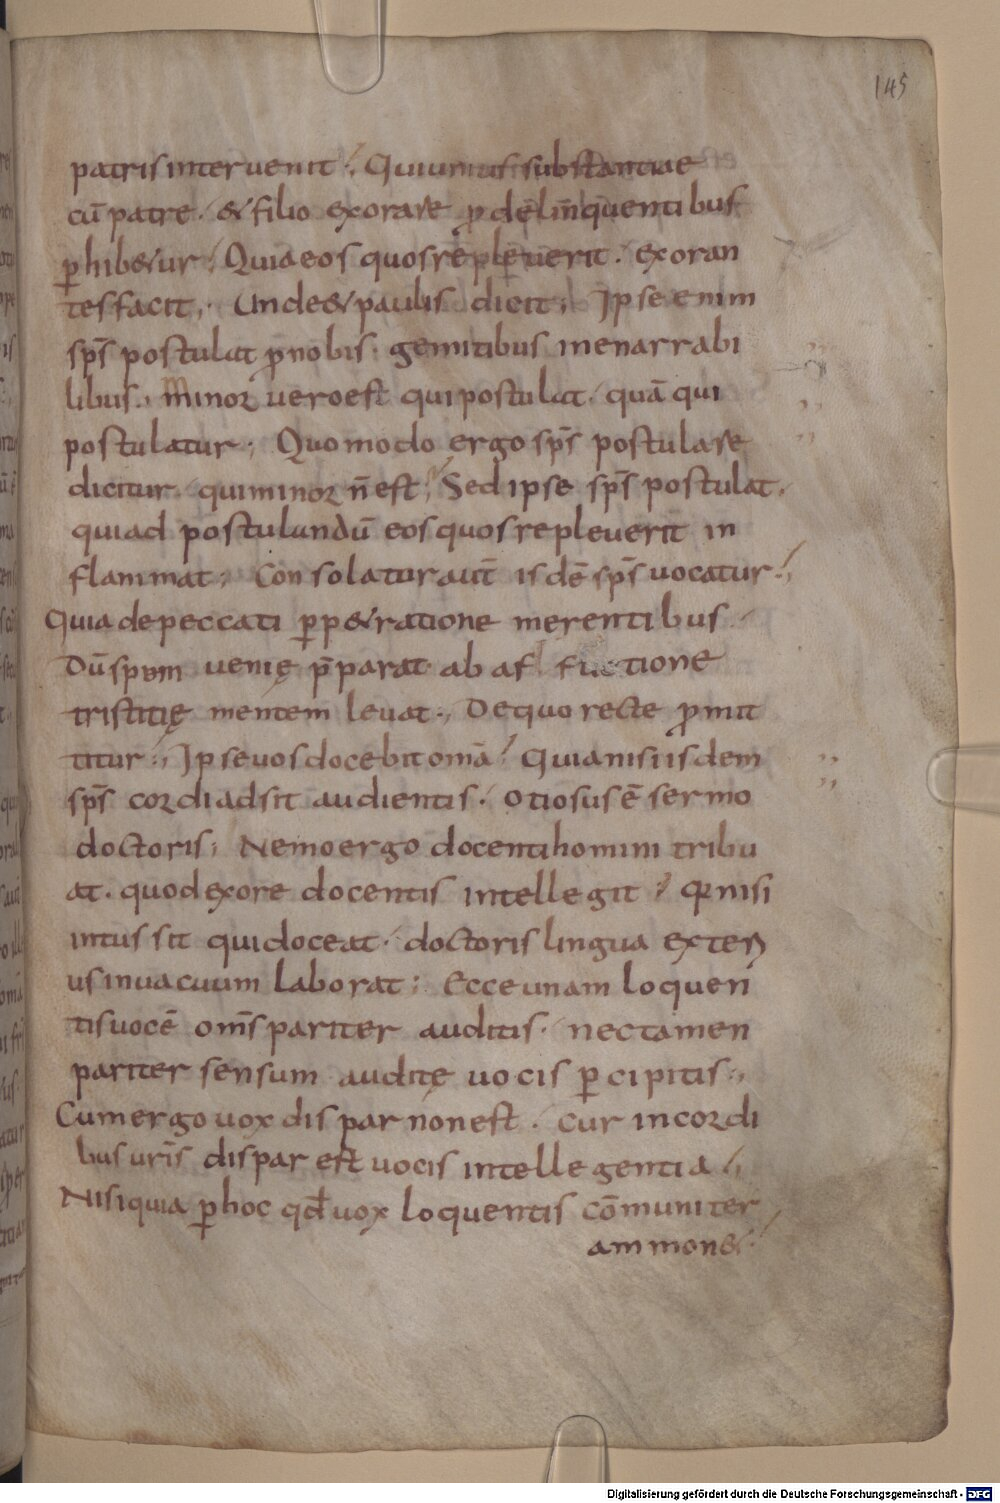 145
patris interuenit; Qui unius substantiae
cū patre. & filio exorare ꝓ delinquentibus
ꝑhib&ur; Quia eos quos repleuerit. exoran
tes facit; Unde & paulus dicit; Ipse enim
sp̄s postulat ꝓ nobis gemitibus inenarrabi
libus; Minor uero est qui postulat. quā qui
postulatur; Quomodo ergo sp̄s postulare
dicitur. qui minor n̄ est; Sed ipse sp̄s postulat.
quia ad postulandū eos quos repleuerit in
flammat; Consolatur aut̄ isdē sp̄s uocatur;
Quia de peccati ꝑp&ratione merentibus.
Dū spem uenię p̄parat. ab afflictione
tristitię mentem leuat; De quo recte ꝓmit
titur; Ipse uos docebit om̄a; Quia nisi isdem
sp̄s cordi adsit audientis. otiosus ē sermo
doctoris; Nemo ergo docenti homini tribu
at. quod ex ore docentis intellegit; Quia nisi
intus sit qui doceat. doctoris lingua exteri
us in uacuum laborat; Ecce unam loquen
tis uocē om̄s pariter auditis. nec tamen
pariter sensum auditę uocis ꝑcipitis;
Cum ergo uox dispar non est. Cur in cordi
bus ur̄is dispar est uocis intellegentia;
Nisi quia ꝑ hoc qd̄ uox loquentis cōmuniter
ammon&.
Digitalisierung gefördert durch die Deutsche Forschungsgemeinschaft - DFG